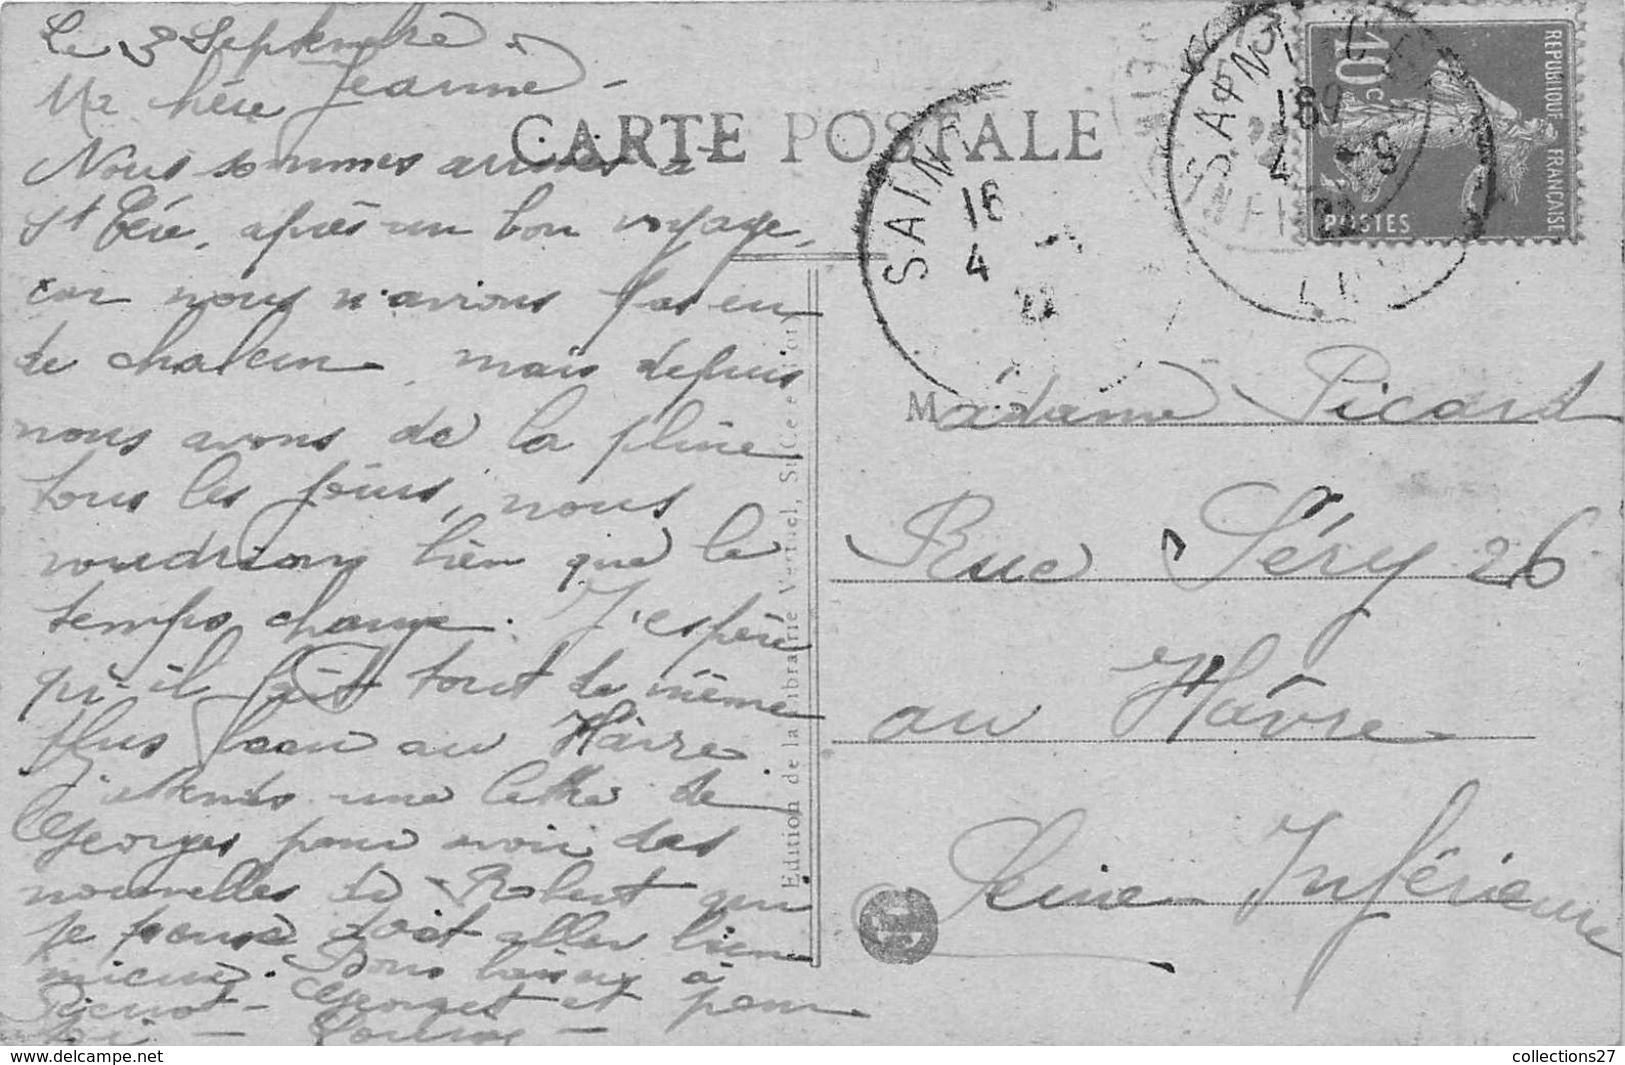 Le 3 Septembre.
Ma chère Jeanne -
Nous sommes arrivés à
St Céré, après un bon voyage,
car nous n'avions pas eu
de chaleur, mais depuis
nous avons de la pluie
tous les jours, nous
voudrions bien que le
temps change. J'espère
qu'il fait tout de même
plus beau au Hâvre.
J'attends une lettre de
Georges pour avoir des
nouvelles de Robert qui
je pense doit aller bien
mieux. Bons baisers à
Pierrot - Georges et pour
toi - Louise -
CARTE POSTALE
Edition de la Librairie Vertuel, St-Céré (Lot)
SAINT
16
4
22
SAINT-CÉRÉ
18
4 - 9
22
LOT
REPUBLIQUE FRANÇAISE
10c
POSTES
Madame Picard
Rue Séry 26
au Hâvre
Seine Inférieure
collections27